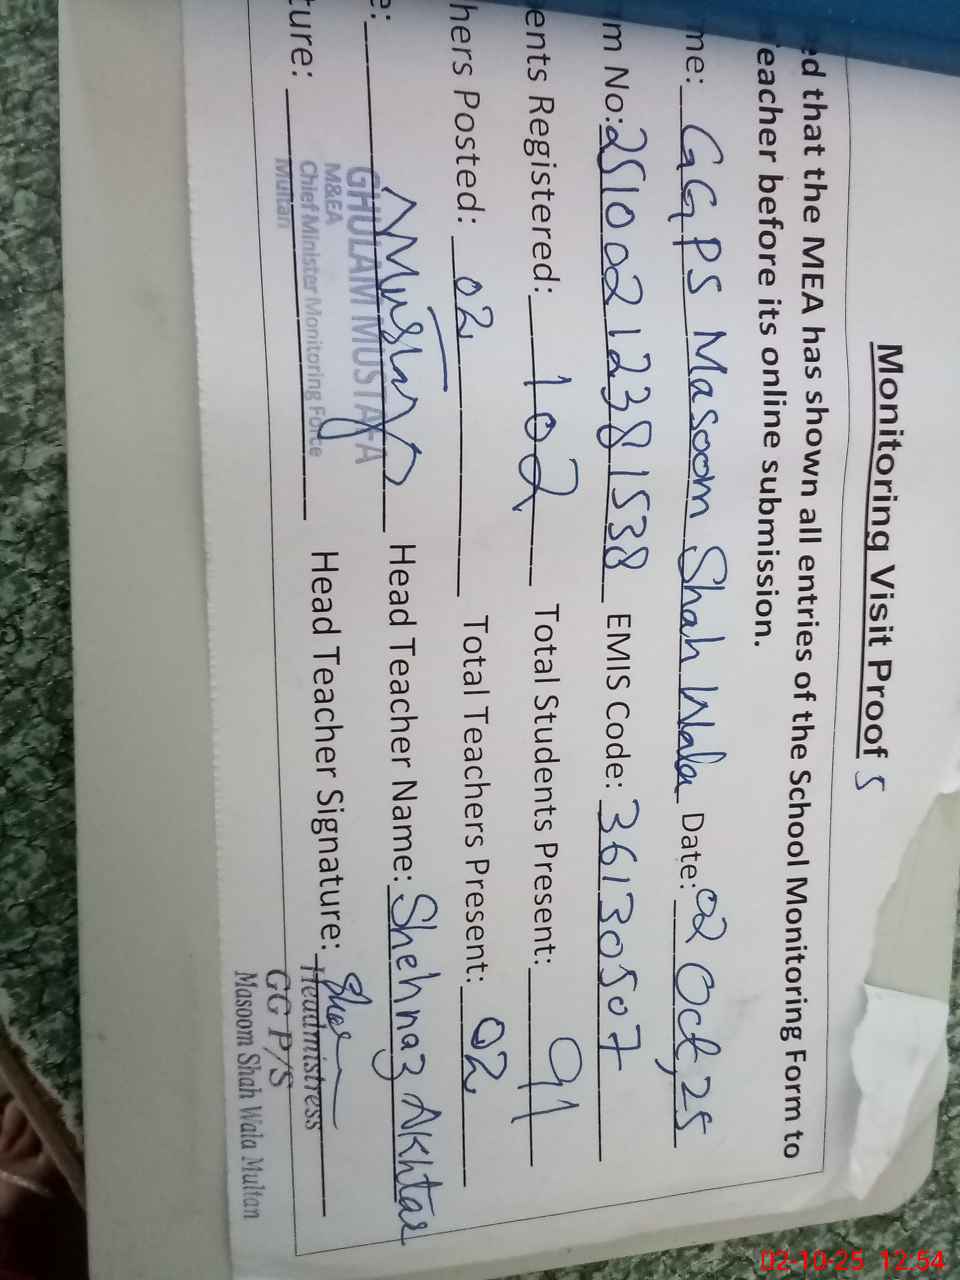 Monitoring Visit Proof S
ed that the MEA has shown all entries of the School Monitoring Form to
Teacher before its online submission.
me: GGPS Masoom Shah Wala Date: 02 Oct, 25
m No: 251002 1238 1538 EMIS Code: 36130507
ents Registered: 102 Total Students Present: 91
hers Posted: 02 Total Teachers Present: 02
e: Head Teacher Name: Shehnaz Akhtar
GHULAM MUSTAFA
M&EA
Chief Minister Monitoring Force
Multan
ture: Head Teacher Signature:
Headmistress
GG P/S
Masoom Shah Wala Multan
02-10-25 12:54